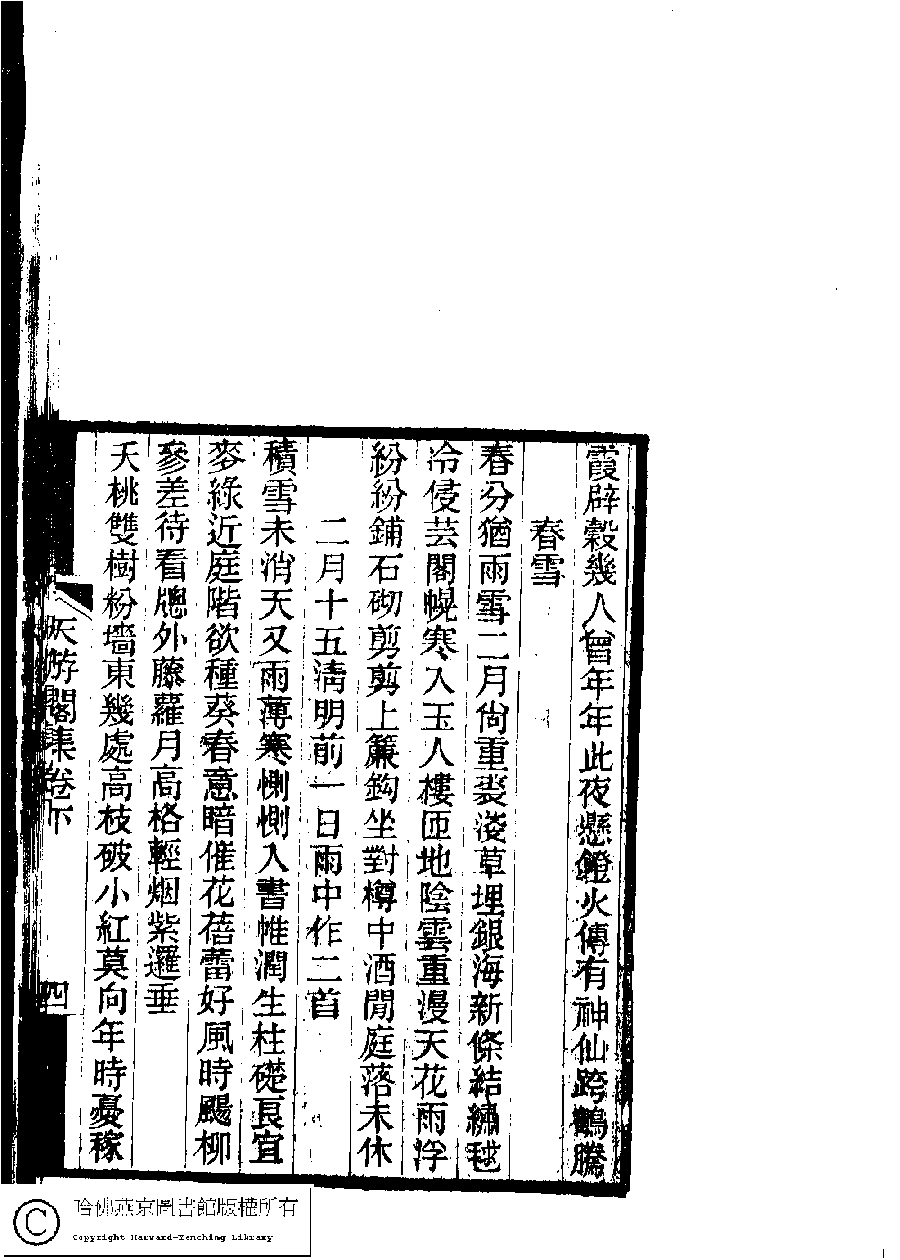 霞辟穀幾人曾年年此夜懸鐙火傳有神仙跨鶴騰
春雪
春分猶雨雪二月尙重裘淺草埋銀海新條結繡毬
冷侵芸閣幌寒入玉人樓匝地陰雲重漫天花雨浮
紛紛鋪石砌剪剪上簾鈎坐對樽中酒閒庭落未休
二月十五淸明前一日雨中作二首
積雪未消天又雨薄寒惻惻入書帷潤生柱礎良宜
麥綠近庭階欲種葵春意暗催花蓓蕾好風時颺柳
參差待看牎外藤蘿月高格輕烟紫邐垂
夭桃雙樹粉墻東幾處高枝破小紅莫向年時憂稼
天游閣集卷下
四
哈佛燕京圖書館版權所有
Copyright Harvard-Yenching Library